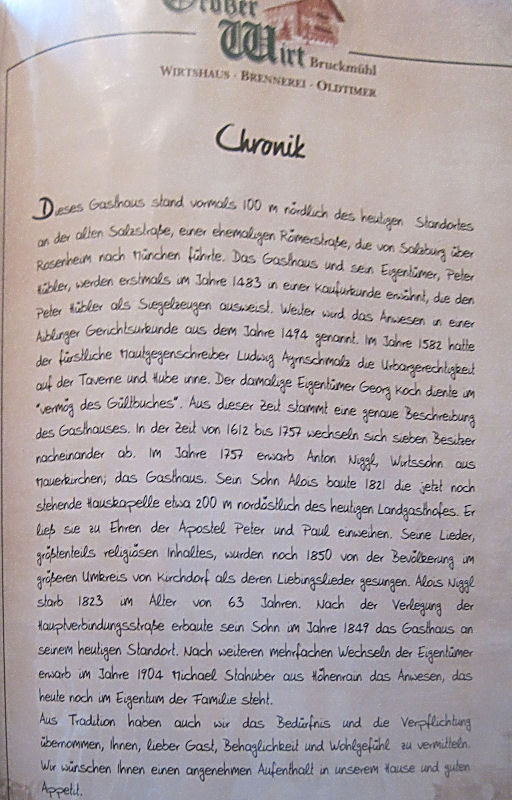 Wirt
Bruckmühl
WIRTSHAUS · BRENNEREI · OLDTIMER
Chronik
Dieses Gasthaus stand vormals 100 m nördlich des heutigen Standortes
an der alten Salzstraße, einer ehemaligen Römerstraße, die von Salzburg über
Rosenheim nach München führte. Das Gasthaus und sein Eigentümer, Peter
Kübler werden erstmals im Jahre 1483 in einer Kaufurkunde erwähnt, die den
Peter Kübler als Siegelzeugen ausweist. Weiter wird das Anwesen in einer
Aiblinger Gerichtsurkunde aus dem Jahre 1494 genannt. Im Jahre 1582 hatte
der fürstliche Mautgegenschreiber Ludwig die Urbargerechtigkeit
auf der Taverne und Hube inne. Der damalige Eigentümer Georg Koch diente im
"vermög des Gültbuches". Aus dieser Zeit stammt eine genaue Beschreibung
des Gasthauses. In der Zeit von 1612 bis 1757 wechseln sich sieben Besitzer
nacheinander ab. Im Jahre 1757 erwarb Anton Niggl, Wirtssohn aus
Mauerkirchen, das Gasthaus. Sein Sohn Alois baute 1821 die jetzt noch
stehende Hauskapelle etwa 200 m nordöstlich des heutigen Landgasthofes. Er
ließ sie zu Ehren der Apostel Peter und Paul einweihen. Seine Lieder,
größtenteils religiösen Inhaltes, wurden noch 1850 von der Bevölkerung im
größeren Umkreis von Kirchdorf als deren Lieblingslieder gesungen. Alois Niggl
starb 1823 im Alter von 63 Jahren. Nach der Verlegung der
Hauptverbindungsstraße erbaute sein Sohn im Jahre 1849 das Gasthaus an
seinem heutigen Standort. Nach weiteren mehrfachen Wechseln der Eigentümer
erwarb im Jahre 1904 Michael Stahuber aus Höhenrain das Anwesen, das
heute noch im Eigentum der Familie steht.
Aus Tradition haben auch wir das Bedürfnis und die Verpflichtung
übernommen, Ihnen, lieber Gast, Behaglichkeit und Wohlgefühl zu vermitteln.
Wir wünschen Ihnen einen angenehmen Aufenthalt in unserem Hause und guten
Appetit.